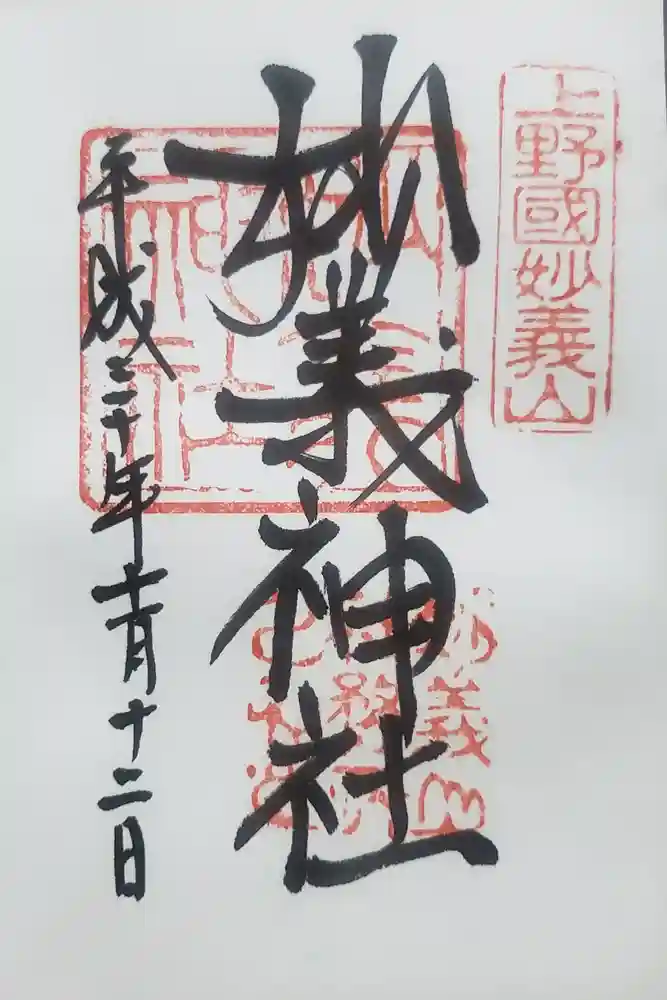 上野國妙義山
妙義神社
妙義神社
妙義山
平成三十年十一月十二日